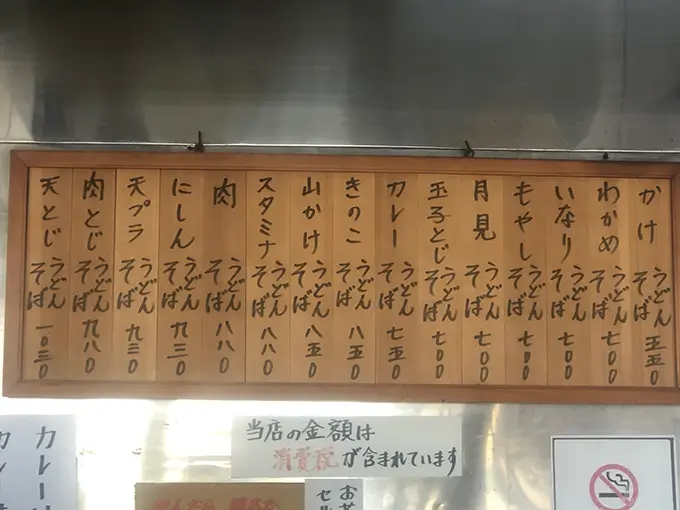 かけ うどん そば 五五0
わかめ うどん そば 七00
いなり うどん そば 七00
もやし うどん そば 七00
月見 うどん そば 七00
玉子とじ うどん そば 七00
カレー うどん そば 七五0
きのこ うどん そば 八五0
山かけ うどん そば 八五0
スタミナ うどん そば 八八0
肉 うどん そば 八八0
にしん うどん そば 九三0
天プラ うどん そば 九三0
肉とじ うどん そば 九八0
天とじ うどん そば 一0三0
当店の金額は
消費税が含まれています
カレー
カレー